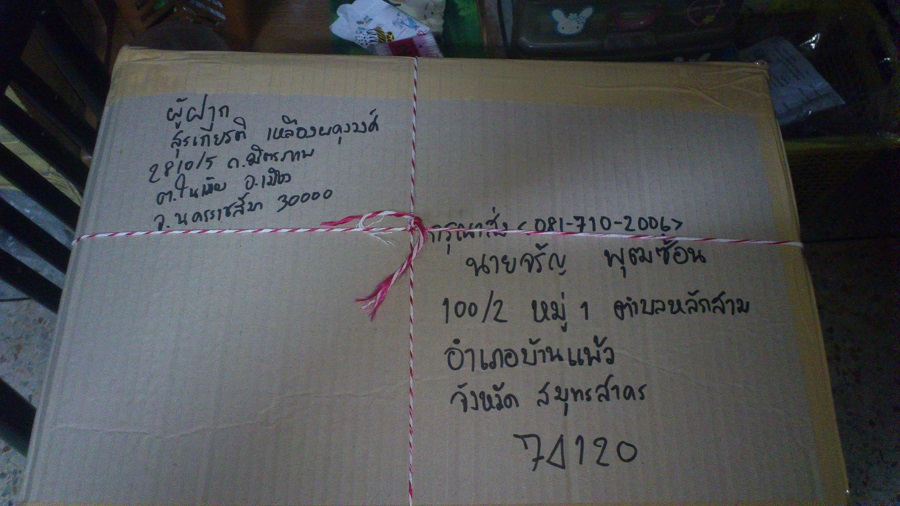 ผู้ฝาก
สุรเกียรติ เหลืองผดุงวงศ์
2810/5 ถ.มิตรภาพ
ต.ในเมือง อ.เมือง
จ.นครราชสีมา 30000
กรุณาส่ง <081-710-2006>
นายจรัญ พุฒซ้อน
100/2 หมู่ 1 ตำบลหลักสาม
อำเภอบ้านแพ้ว
จังหวัด สมุทรสาคร
74120